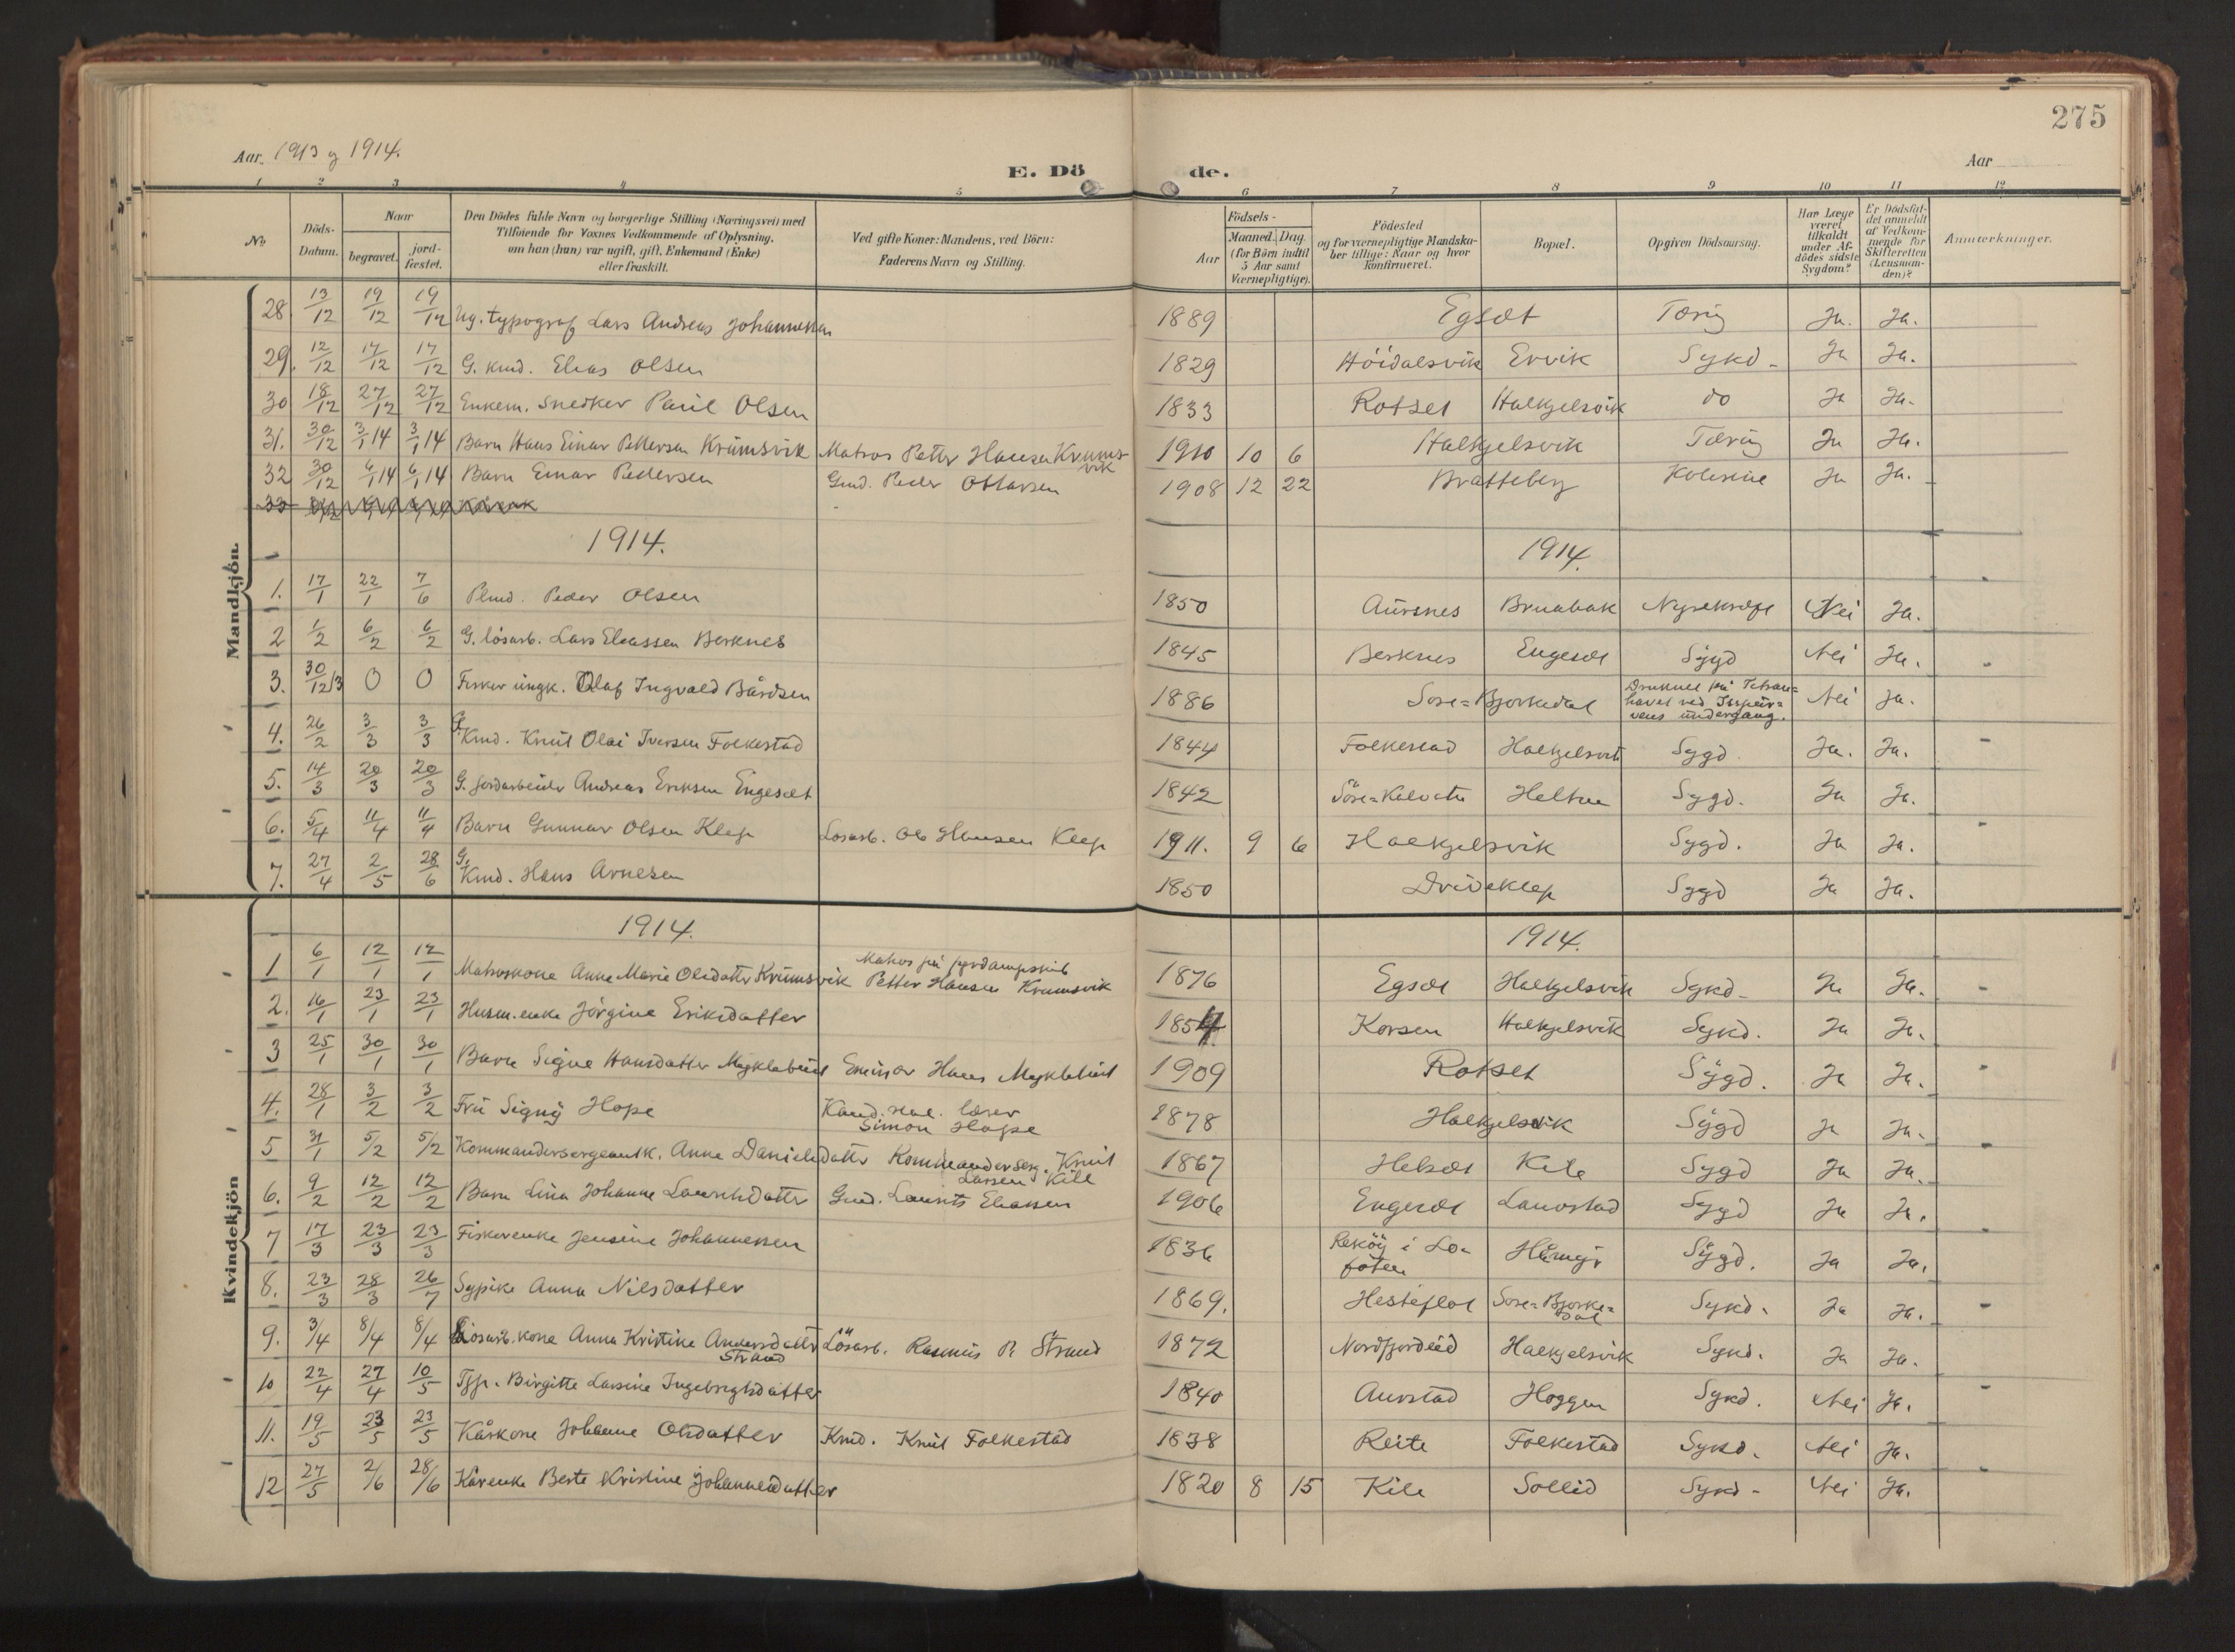 275
Aar 1913 og 1914.
E. Dö de.
Aar
1 2 3 4 5 6 7 8 9 10 11 12
No
Döds-Datum.
Naar begravet. jord-fæstet.
Den Dödes fulde Navn og borgerlige Stilling (Næringsvei) med
Tilföiende for Voxnes Vedkommende af Oplysning,
om han (hun) var ugift, gift, Enkemand (Enke)
eller fraskilt.
Ved gifte Koner: Mandens, ved Börn:
Faderens Navn og Stilling.
Födsels-
Aar Maaned. Dag.
(for Börn indtil
5 Aar samt
Værnepligtige).
Födested
og for værnepligtige Mandska-
ber tillige: Naar og hvor
konfirmeret.
Bopæl.
Opgiven Dödsaarsag.
Har Læge
været
tilkaldt
under Af-
dödes sidste
Sygdom?
Er Dödsfal-
det anmeldt
af Vedkom-
mende for
Skifteretten
(Lensman-
den)?
Anmærkninger.
Mandkjön.
28. 13/12 19/12 19/12 Ug. typograf Lars Andreas Johannesen 1889 Egset Tæring Ja. Ja.
29. 12/12 17/12 17/12 G. kmd. Elias Olsen 1829 Höidalsvik Ervik Sykd- Ja Ja.
30 18/12 27/12 27/12 Enkem. Snedker Paul Olsen 1833 Rotset Halkjelsvik do Ja Ja.
31. 30/12 3/1 14 3/1 14 Barn Hans Einar Pettersen Krumsvik Matros Petter Hansen Krums-
vik 1910 10 6 Halkjelsvik Tæring Ja Ja.
32 30/12 6/1 14 6/1 14 Barn Einar Pedersen Gmd. Peder Ottarsen 1908 12 22 Bratteberg Kolerine Ja Ja.
33
1914. 1914.
1. 17/1 22/1 7/6 Plmd. Peder Olsen 1850 Aursnes Bruabak Nyrekræft Nei Ja.
2 1/2 6/2 6/2 G. lösarb. Lars Eliassen Berknes 1845 Berknes Engeset Sygd Nei Ja.
3. 30/12 13 0 0 Fisker ungk. Olaf Ingvald Bårdsen 1886 Söre=Bjorkedal Druknet på
havet ved
undergang. Nei Ja.
4. 26/2 3/3 3/3 G. Kmd. Knut Olai Iversen Folkestad 1844 Folkestad Halkjelsvik Sygd. Ja. Ja.
5. 14/3 20/3 20/3 G. jordarbeider Andreas Eriksen Engeset 1842 Söre=Kalvatn Heltne Sygd. Ja Ja.
6. 5/4 11/4 11/4 Barn Gunnar Olsen Klep Lösarb. Ole Hansen Klep 1911. 9 6 Halkjelsvik Sygd. Ja Ja.
7. 27/4 2/5 28/6 G. Kmd. Hans Arnesen 1850 Drideklep Sygd Ja Ja.
Kvindekjön
1914. 1914.
1 6/1 12/1 12/1 Matroskone Anne Marie Olsdatter Krumsvik Matros på fyrdampskib
Petter Hansen Krumsvik 1876 Egset Halkjelsvik Sykd- Ja Ja.
2. 16/1 23/1 23/1 Husm.enke Jörgine Eriksdatter 1854 Korsen Halkjelsvik Sykd. Ja Ja.
3 25/1 30/1 30/1 Barn Signe Hansdatter Myklebust Emisær Hans Myklebust 1909 Rotset Sygd. Ja Ja.
4. 28/1 3/2 3/2 Fru Signy Hope Kand. lærer
Simon Hope 1878 Halkjelsvik Sygd Ja Ja.
5 31/1 5/2 5/2 Kommandersergeantk. Anne Danielsdatter Kommanderserg. Knut
Larsen Kile 1867 Helset Kile Sygd Ja Ja.
6. 9/2 12/2 12/2 Barn Lina Johanne Lauritsdatter Gmd. Laurits Eliassen 1906 Engeset Lauvstad Sygd Ja Ja.
7 17/3 23/3 23/3 Fiskerenke Jensine Johannessen 1836 Reköy i Lo-
foten Sygd. Ja Ja.
8. 23/3 28/3 26/7 Sypike Anna Nilsdatter 1869. Hesteflot Söre=Bjorke=
dal Sykd. Ja Ja.
9. 3/4 8/4 8/4 Lösarb.kone Anna Kristine Andersdatter
Strand Lösarb. Rasmus P. Strand 1872 Nordfjordeid Halkjelsvik Sykd. Ja Ja.
10 22/4 27/4 10/5 Tjp. Birgitte Larsine Ingebrigtsdatter 1840 Aurstad Hoggen Sykd. Nei Ja.
11. 19/5 23/5 23/5 Kårkone Johanne Olsdatter Kmd. Knut Folkestad 1838 Reite Folkestad Sykd. Nei Ja.
12 27/5 2/6 28/6 Kårenke Berte Kristine Johannesdatter 1820 8 15 Kile Sollid Sykd- Nei Ja.